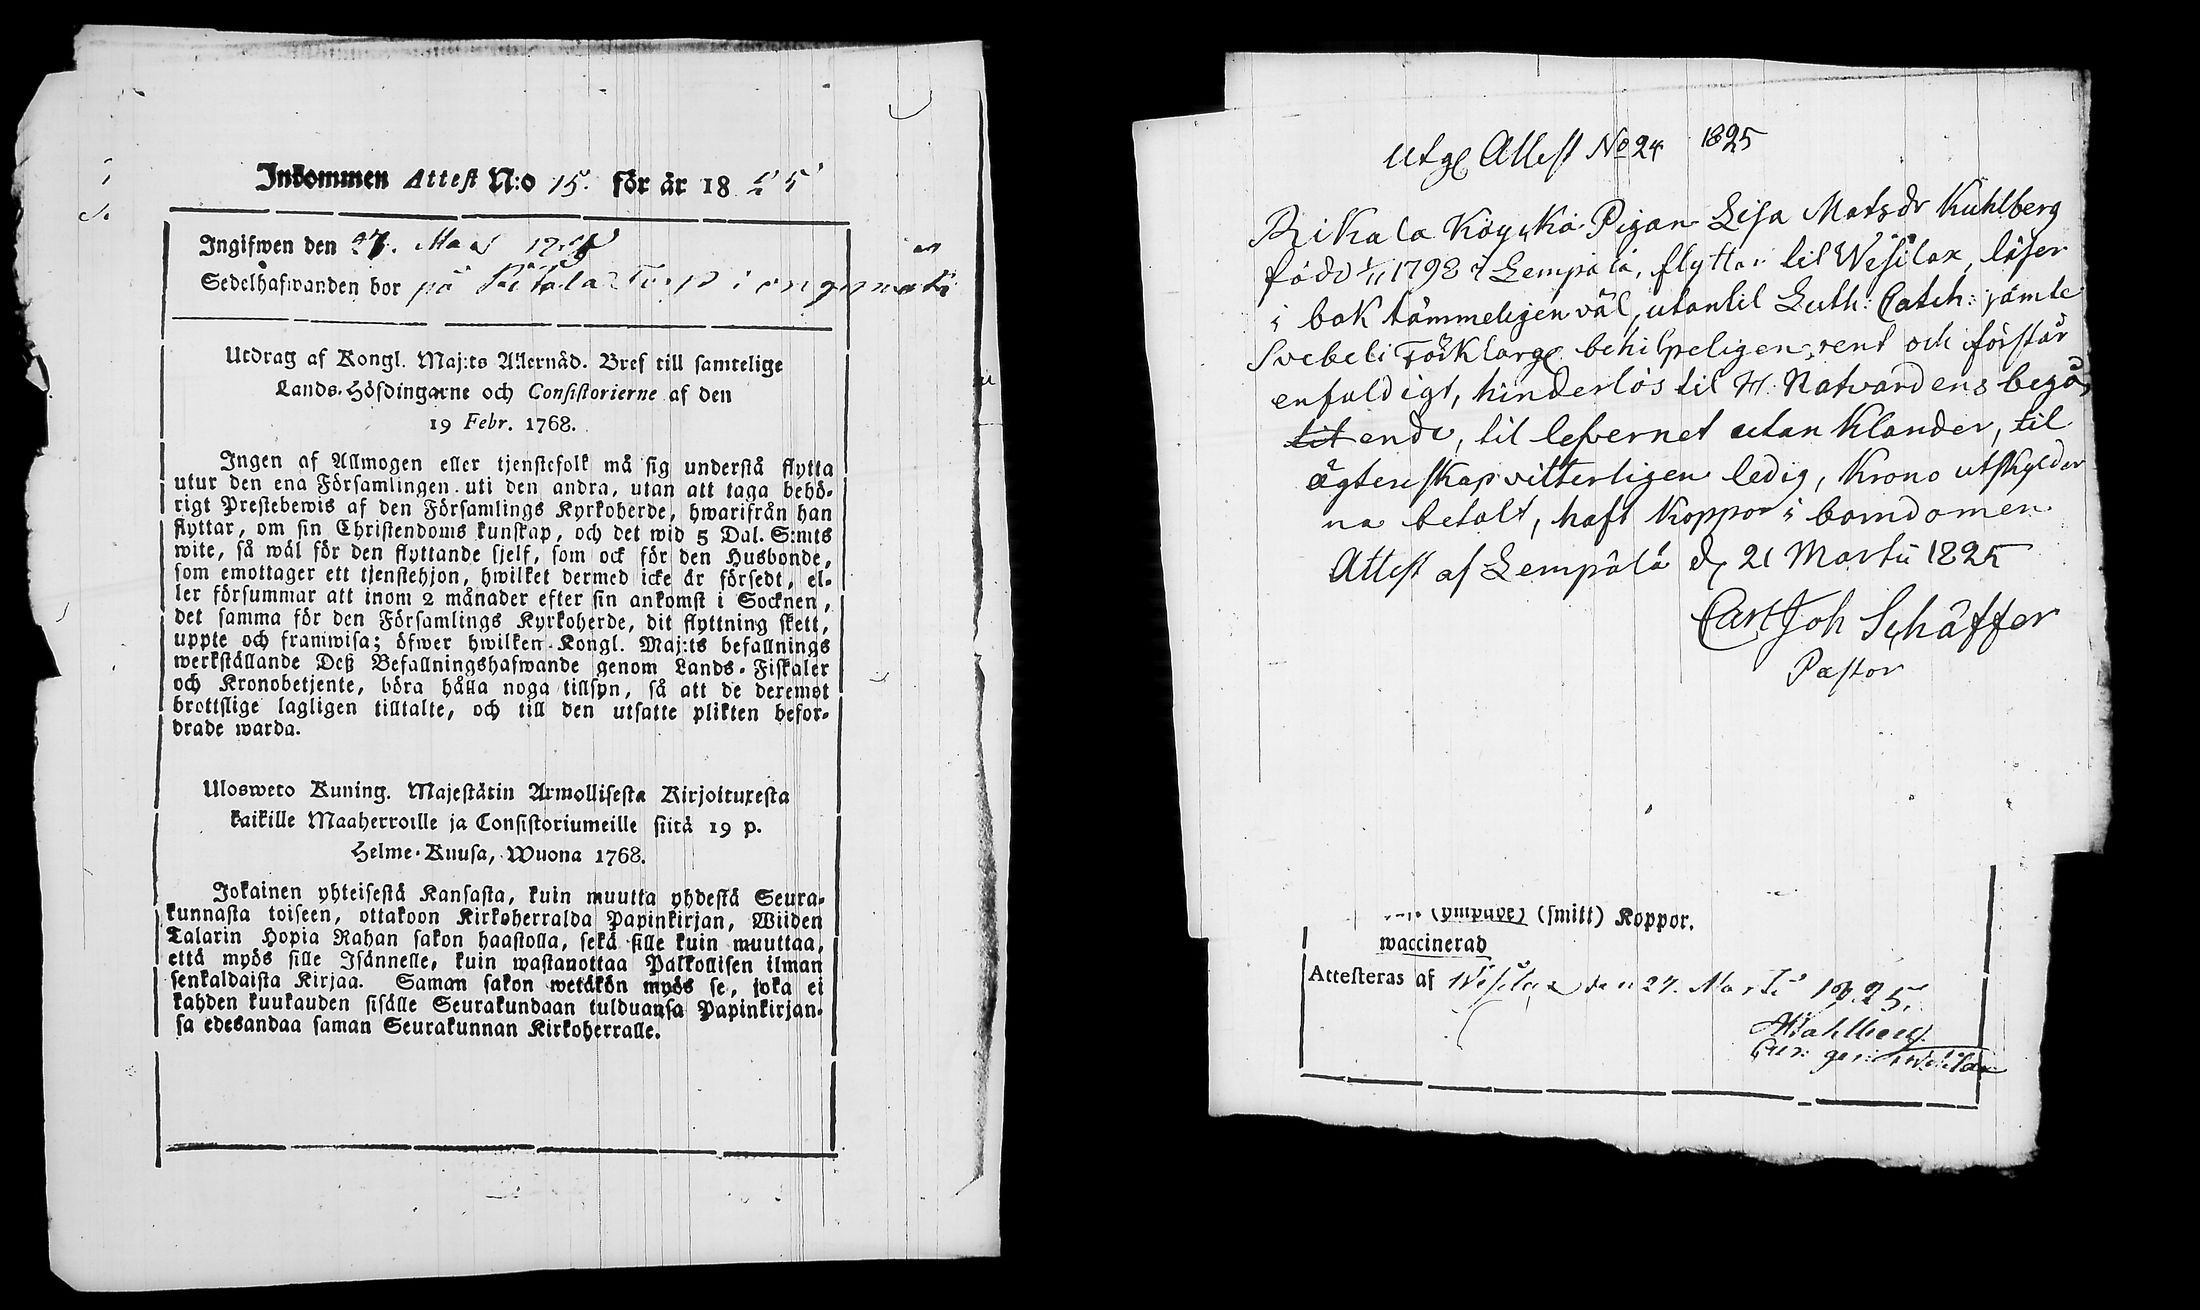 Inkommen Attest N:o 15. för år 1825
Ingifwen den 27. Mars
Sedelhafwanden bor på Torp i
Utdrag af Kongl. Maj:ts Allernåd. Bref till samtelige
Lands-Höfdingarne och Consistorierne af den
19 Febr. 1768.
Ingen af Allmogen eller tjenstefolk må sig understå flytta
utur den ena Församlingen uti den andra, utan att taga behö-
rigt Prestebewis af den Församlings Kyrkoherde, hwarifrån han
flyttar, om sin Christendoms kunskap, och det wid 5 Dal. S:mts
wite, så wäl för den flyttande sjelf, som ock för den Husbonde,
som emottager ett tjenstehjon, hwilket dermed icke är försedt, el-
ler försummar att inom 2 månader efter sin ankomst i Socknen,
det samma för den Församlings Kyrkoherde, dit flyttning skett,
uppte och framwisa; öfwer hwilken Kongl. Maj:ts befallnings
werkställande Deß Befallningshafwande genom Lands-Fiskaler
och Kronobetjente, böra hålla noga tillsyn, så att de deremot
brottslige lagligen tilltalte, och till den utsatte plikten befor-
drade warda.
Ulosweto Kuning. Majestätin Armollisesta Kirjoituxesta
kaikille Maaherroille ja Consistoriumeille siitä 19 p.
Helme-Kuusa, Wuona 1768.
Jokainen yhteisestä Kansasta, kuin muutta yhdestä Seura-
kunnasta toiseen, ottakoon Kirkoherralda Papinkirjan, Wiiden
Talarin Hopia Rahan sakon haastolla, sekä sille kuin muuttaa,
että myös sille Isännelle, kuin wastanottaa Palkollisen ilman
senkaldaista Kirjaa. Saman sakon wetäkön myös se, joka ei
kahden kuukauden sisälle Seurakundaan tulduansa Papinkirjan-
sa edesandaa saman Seurakunnan Kirkoherralle.
Utg Attest No 24 1825
Rikala Pigan Lisa Matsdr Kuhlberg
född 1/11 1798 i Lempälä, flyttar til Wesilax, läser
i bok tämmeligen väl, utantil Luth: Catch: jämte
Svebeli Förklarg behilpeligen, rent och förstår
enfaldigt, hinderlös til H. Natvardens begå,
tit ende, til lefvernet utan klander, til
ägtenskap vitterligen ledig, Krono utskylder
na betalt, haft koppor i barndomen.
Attest af Lempälä d. 21 Martii 1825
Carl Joh Schäffer
Pastor
(smitt) Koppor.
waccinerad
Attesteras af Wesilax den 27. Martii 1825.
Wahlberg.